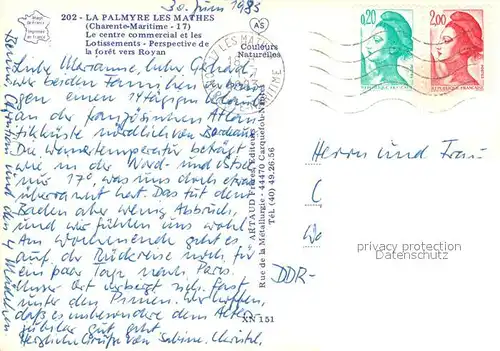 30. Juni 1985
202 - LA PALMYRE LES MATHES
(Charente-Maritime - 17)
Le centre commercial et les
Lotissements - Perspective de
la forêt vers Royan
Image de France
IMPRIMÉ EN FRANCE
AS
Couleurs
Naturelles
LES MATHES
MARITIME
0,20
2,00
REPUBLIQUE FRANÇAISE
Liebe Marianne, lieber Gerhard,
wir beiden Familien
gen einen 14tägigen Urlaub
an der französischen Atlan-
tikküste nördlich von Bordeaux.
Die Wassertemperatur beträgt
wie in der Nord- und Ostsee
nur 17°, was uns doch etwas
überrascht hat. Das tut dem
Baden aber wenig Abbruch,
und wir fühlen uns wohl.
Am Wochenende geht es,
auf der Rückreise noch für
ein paar Tage nach Paris.
Unser Ort verbirgt sich fast
unter den Pinien. Wir hoffen,
daß es insbesondere dem Alters-
jubilar gut geht.
Herzliche Grüße von Sabine, Christel,
Christian und den 4 Mädchen.
ARTAUD Frères Editeurs
Rue de la Métallurgie - 44470 Carquefou-Nantes
Tél. (40) 49.26.56
XN 151
Herrn und Frau
DDR-
privacy protection
Datenschutz